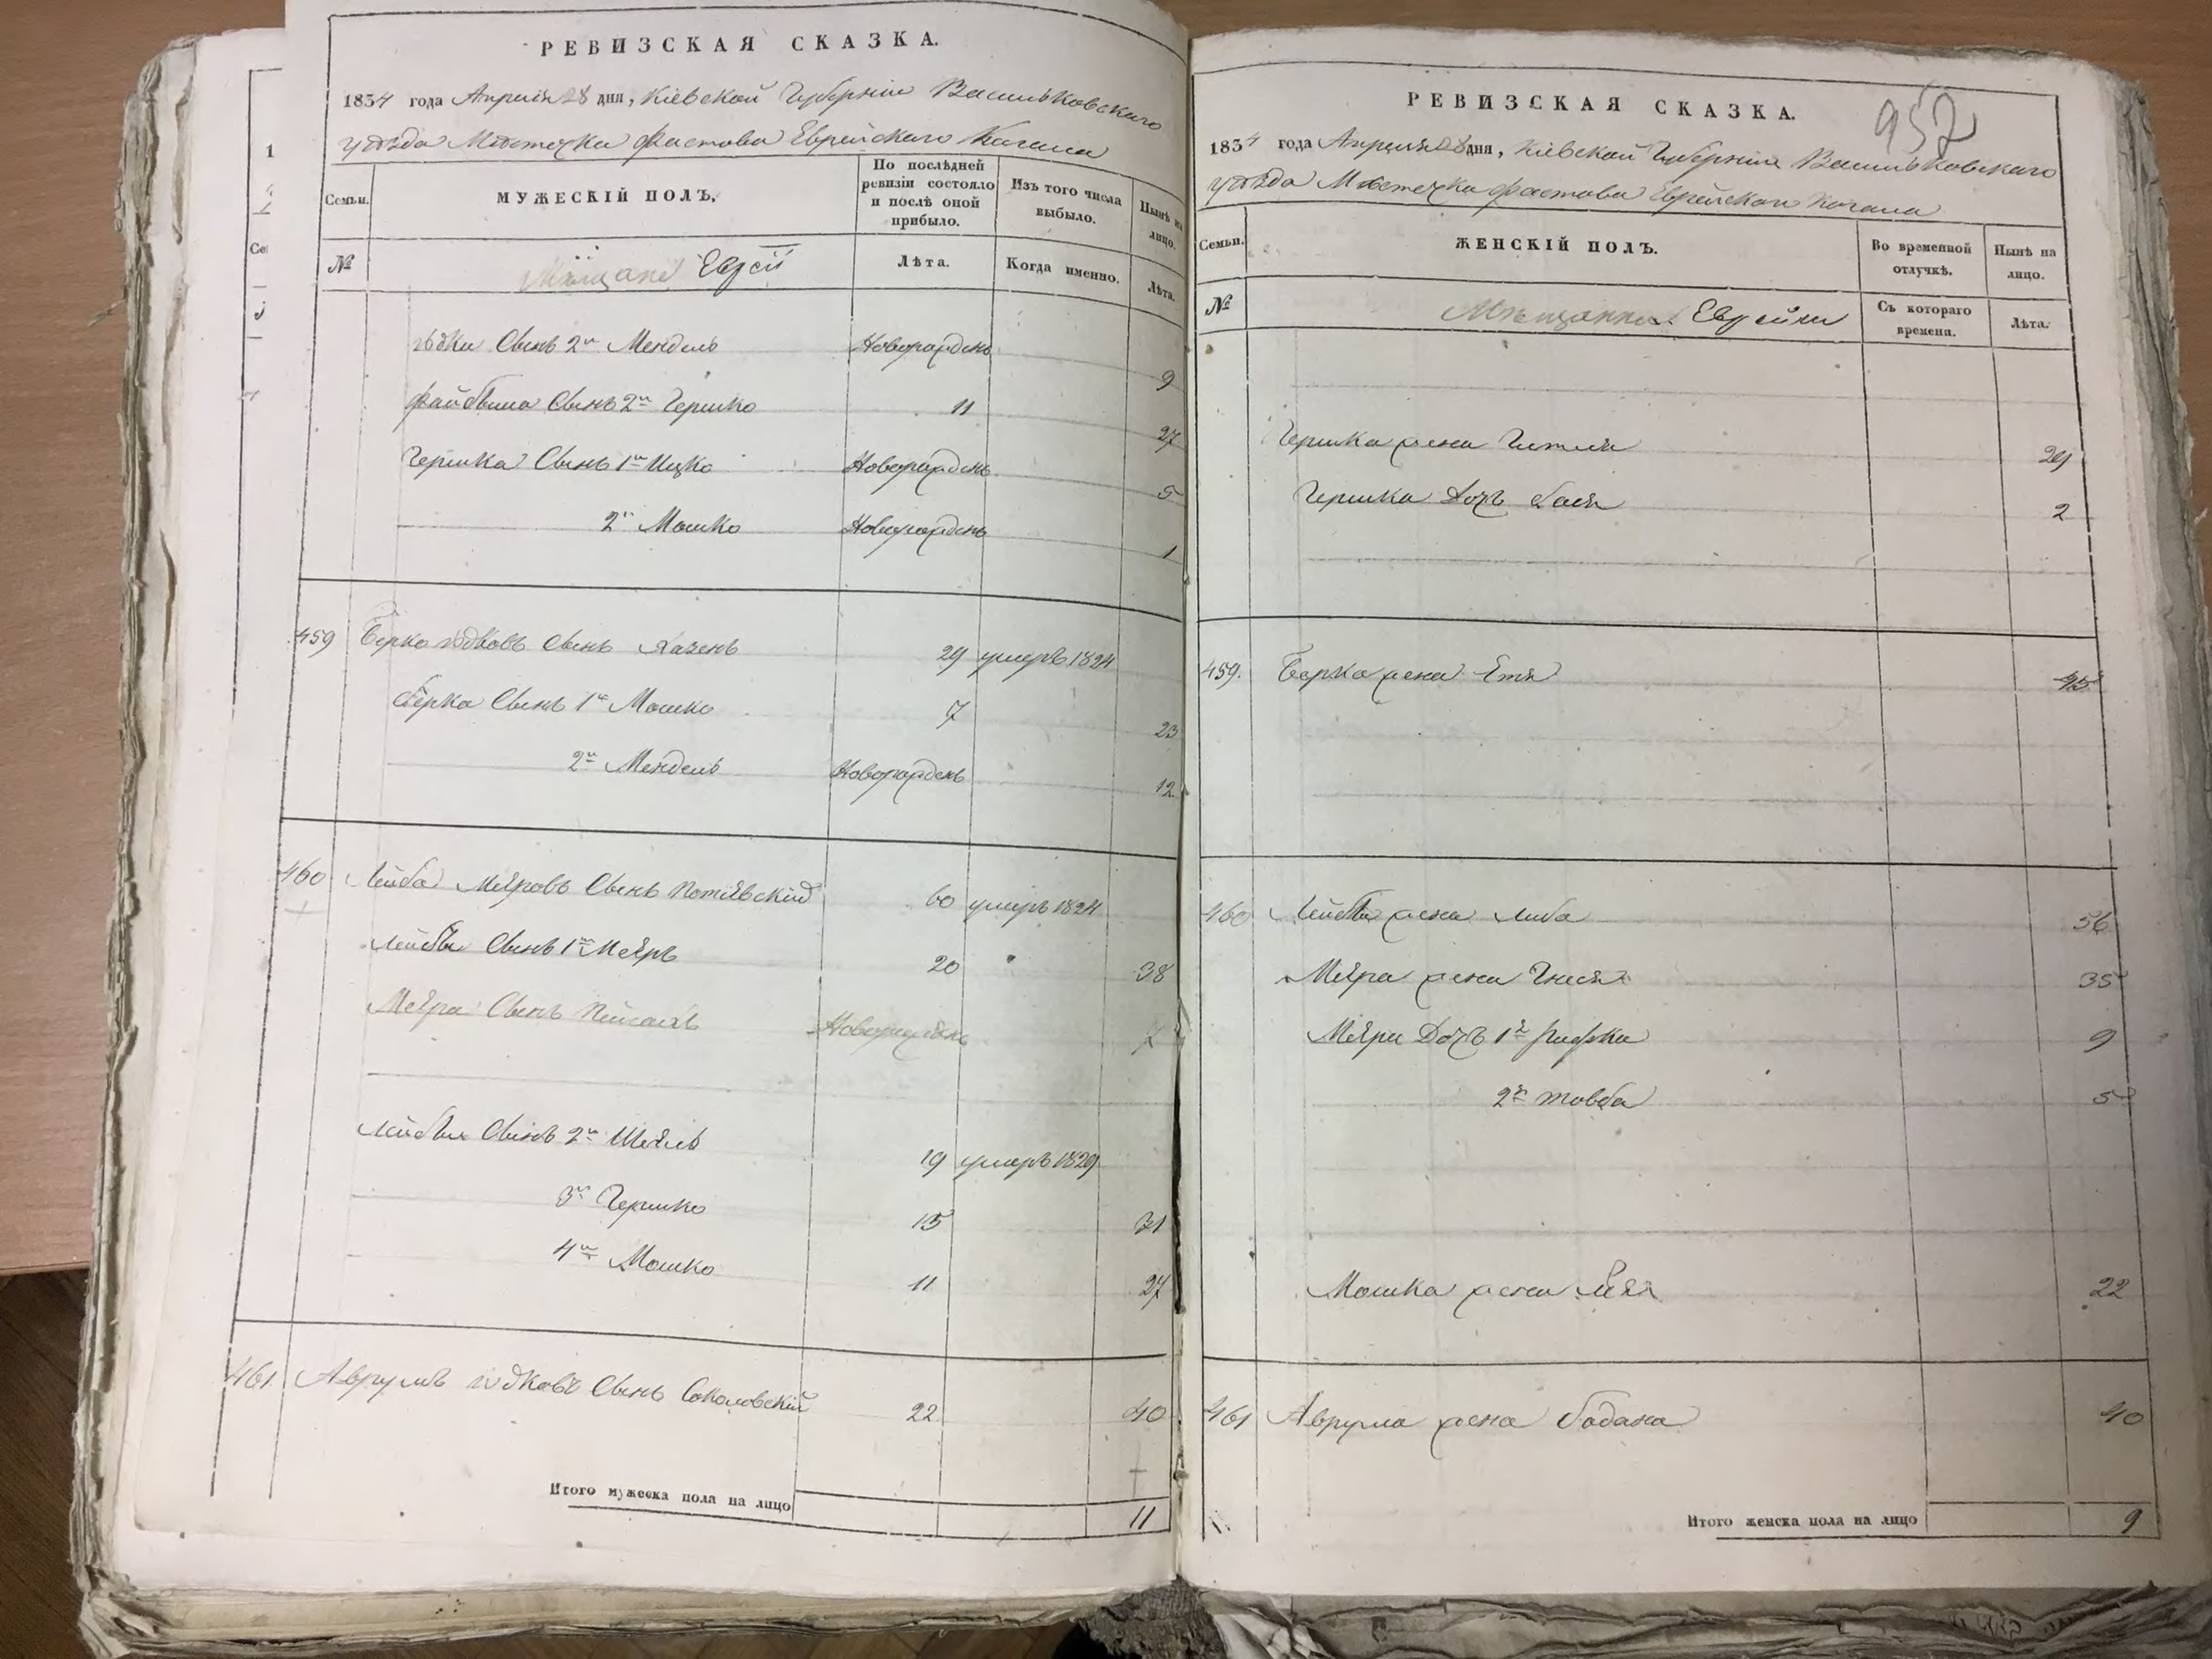 РЕВИЗСКАЯ СКАЗКА.
1834 года Апреля 28 дня, Кіевской Губерніи Васильковскаго
уѣзда Мѣстечка Фастова Еврейскаго Кагала
Семьи.
МУЖЕСКІЙ ПОЛЪ,
По послѣдней ревизіи состояло и послѣ оной прибыло.
Изъ того числа выбыло.
Нынѣ на лицо.
№
Мѣщане Евреи
Лѣта.
Когда именно.
Лѣта.
Сынъ 2й Мендель Новорожденъ 9
Файбиша Сынъ 2й Гершко 11 27
Гершка Сынъ 1й Ицко Новорожденъ 5
2й Мошко Новорожденъ 1
459 Берко Сынъ 29 умеръ 1824
Берка Сынъ 1й Мошко 7 23
2й Мендель Новорожденъ 12
460 Лейба Меяровъ Сынъ 60 умеръ 1824
Лейбы Сынъ 1й Меяръ 20 38
Меяра Сынъ Пейсахъ Новорожденъ 7
Лейбы Сынъ 2й 19 умеръ 1829
3й Гершко 15 31
4й Мошко 11 27
461 Аврумъ Сынъ Соколовскій 22 40
Итого мужеска пола на лицо 11
957
РЕВИЗСКАЯ СКАЗКА.
1834 года Апреля 28 дня, Кіевской Губерніи Васильковскаго
уѣзда Мѣстечка Фастова Еврейскаго Кагала
Семьи.
ЖЕНСКІЙ ПОЛЪ.
Во временной отлучкѣ.
Нынѣ на лицо.
№
Мѣщанки Еврейки
Съ котораго времени.
Лѣта.
Гершка жена Гитля
Гершка дочь Бася 2
459. Берка жена Етя 45
460 Лейбы жена Либа 56
Меяра жена Гнеся 35
Меяра Дочь 1я Рифка 9
2я Товба 5
Мошка жена Лея 22
461 Аврума жена Бадана 40
Итого женска пола на лицо 9